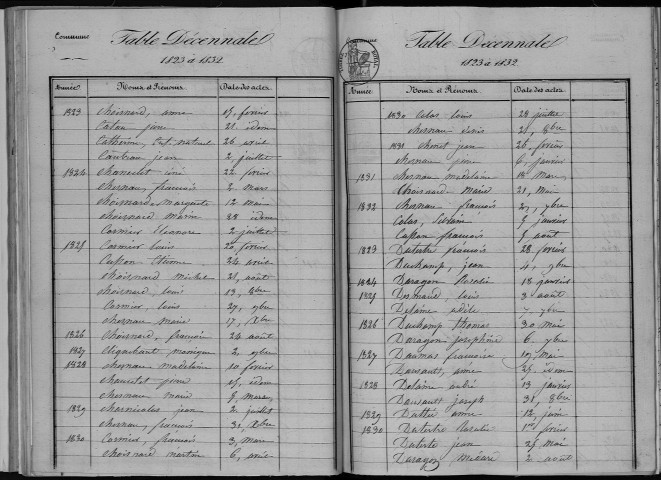 Commune
Table Décennale
1823 à 1832
Année Noms et Prénoms Date des actes
1823 Choisnard, anne 15, fevrier
Catan jean 21 idem
Catherine, Enf. naturel 26 avril
jean 2, juillet
1824 22 fevrier
Chesnau, francois 2 mars
Choisnard, margueritte 12 mai
Choisnard marin 28 idem
Cormier Eleanore 2 juillet
1825 Cormier louis 20, fevrier
Cusson Etienne 24 avril
Choisnard michel 21, août
Choisnard, louis 13, 8bre
Cormier, louis 27, 9bre
Chesnau marie 17, Xbre
1826 Choisnard, francois 24 août
1827 monique 2, 9bre
1828 Chesnau madelaine 10 fevrier
jean 15, idem
Chesnau marie 9, mars
1829 jean 2, juillet
Chesnau, francois 31, Xbre
1830 Cormier, francois 3, mars
Choisnard martin 6, avril
Commune
Table Décennale
1823 à 1832
Année Noms et Prénoms Date des actes
1830 Colas louis 28 juillet
Chesnau 21, 8bre
1831 jean 26, fevrier
Chesnau jean 6, janvier
1831 Chesnau madelaine 18 mars
Choisnard marie 21, mai
1832 Chesnau francois 27, 9bre
Colas, 9 janvier
Cusson francois 8 août
1823 Dutertre francois 28 fevrier
Duchamp, jean 4, 9bre
1824 Daragon 18 janvier
1825 louis 3 août
Delaine adèle 7 9bre
1826 Duchamp thomas 30 mai
Daragon josephine 6, 9bre
1827 Daumas francoise 19, mai
Dansault, anne 25, idem
1828 Delaine andré 13 janvier
Dansault joseph 31, 8bre
1829 anne 12, juin
1830 Dutertre 1er fevrier
Dutertre jean 25 mai
Daragon 2 août